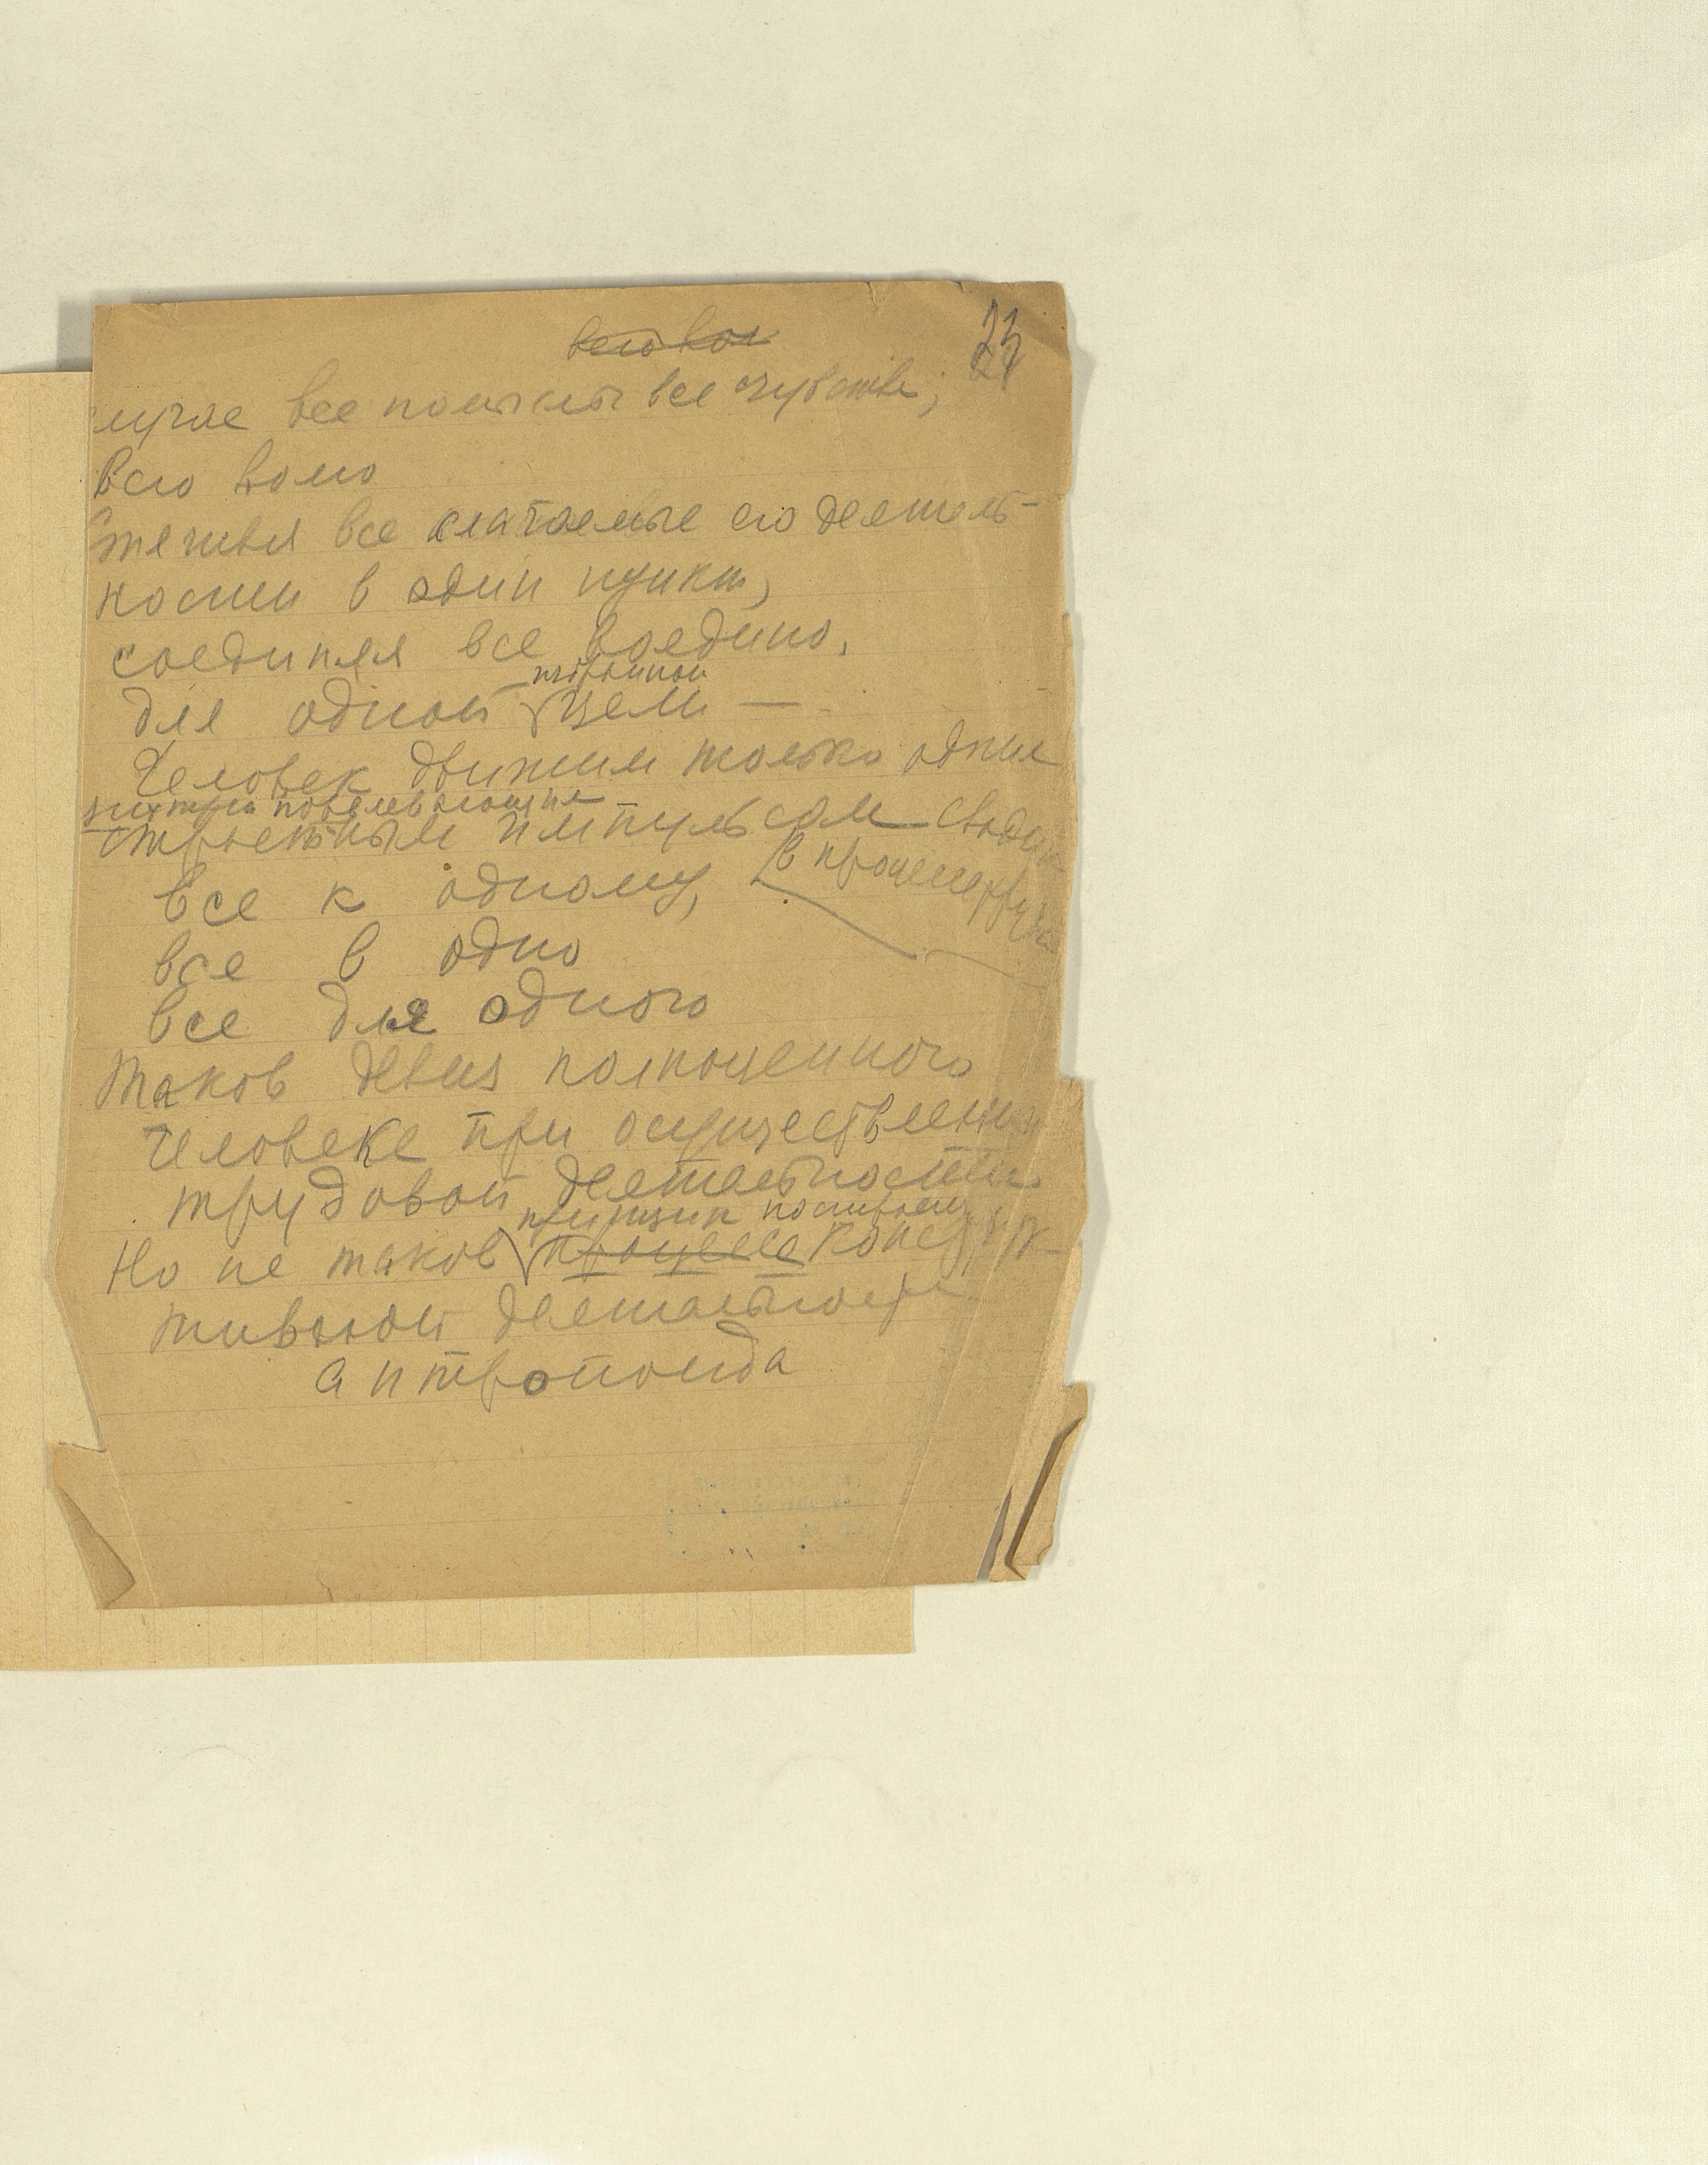 всю вол
23
лучае все помыслы все чувства;
Всю волю
Стягивая все слагаемые его деятель-
ности в один пункт,
соединяя все воедино,
для одной избранной цели —
Человек движим только одним
повелевающим
страстным импульсом сводя
все к одному, в процессе труда
все в одно
все для одного
Таков девиз полноценного
Человека при осуществлении
трудовой деятельности.
принцип построения
Но не таков процесс конструк-
тивной деятельности
антропоида